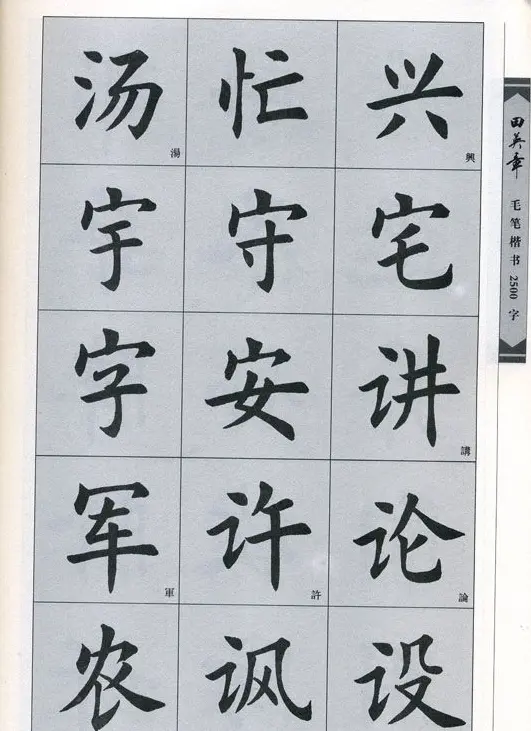 汤湯 忙 兴興
宇 守 宅
字 安 讲講
军軍 许許 论論
农 讽 设
田英章 毛笔楷书 2500 字